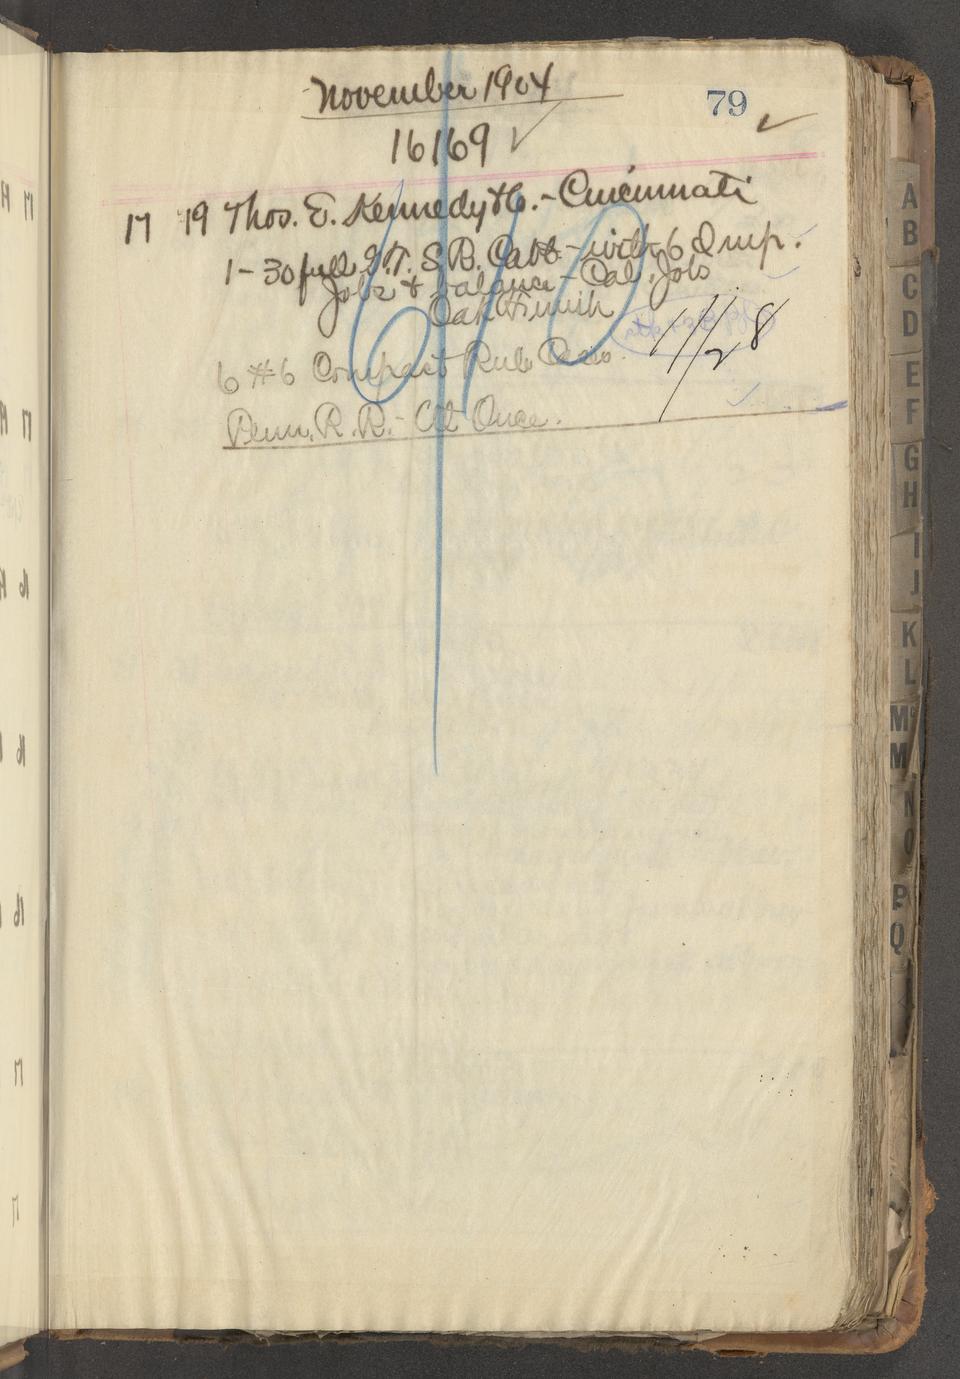 November 1904
79
16169 ✓
17 19 Thos. E. Kennedy & Co. - Cincinnati
1 - 30 full S.B. Cabt - with 6 Imp.
Jobs & balance - Cal. Jobs
Oak Finish
6 #6 Compact Rule Cases.
11/28
Penn. R.R. - At Once.
A
B
C
D
E
F
G
H
I
J
K
L
Mc
M
N
O
P
Q
17
16
16
16
17
17